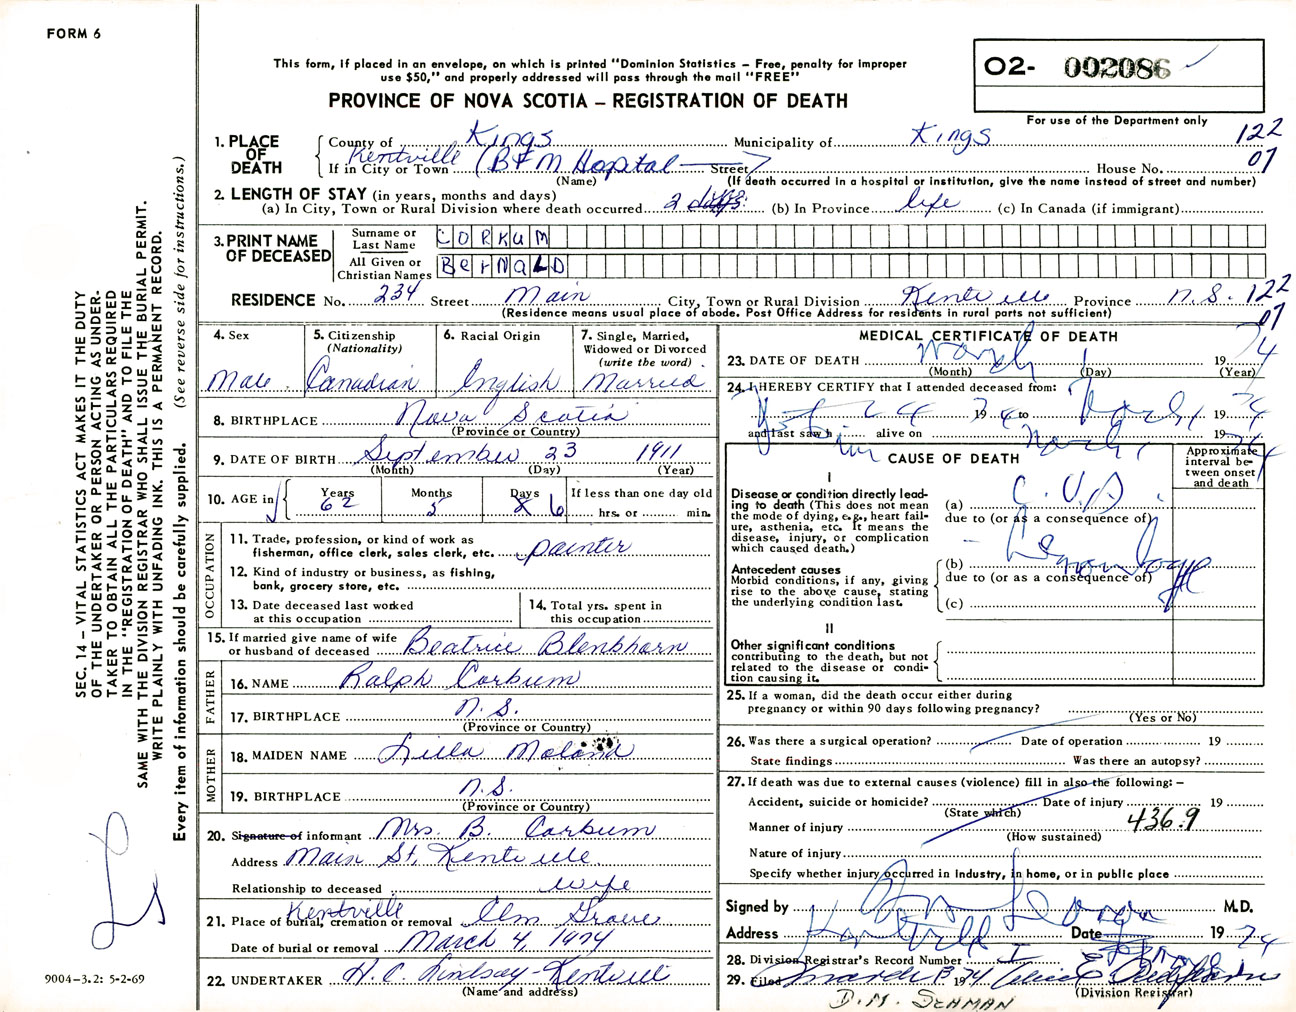 FORM 6
This form, if placed in an envelope, on which is printed "Dominion Statistics – Free, penalty for improper
use $50," and properly addressed will pass through the mail "FREE"
PROVINCE OF NOVA SCOTIA – REGISTRATION OF DEATH
02- 002086
For use of the Department only
SEC. 14 – VITAL STATISTICS ACT MAKES IT THE DUTY
OF THE UNDERTAKER OR PERSON ACTING AS UNDER-
TAKER TO OBTAIN ALL THE PARTICULARS REQUIRED
IN THE "REGISTRATION OF DEATH" AND TO FILE THE
SAME WITH THE DIVISION REGISTRAR WHO SHALL ISSUE THE BURIAL PERMIT.
WRITE PLAINLY WITH UNFADING INK. THIS IS A PERMANENT RECORD.
Every item of information should be carefully supplied. (See reverse side for instructions.)
1. PLACE OF DEATH
County of Kings Municipality of Kings 122
If in City or Town Kentville (B F M Hospital Street House No. 07
(Name) (If death occurred in a hospital or institution, give the name instead of street and number)
2. LENGTH OF STAY (in years, months and days)
(a) In City, Town or Rural Division where death occurred 2 days (b) In Province life (c) In Canada (if immigrant)
3. PRINT NAME OF DECEASED
Surname or Last Name CORKUM
All Given or Christian Names BerNALD
RESIDENCE No. 234 Street Main City, Town or Rural Division Kentville Province N.S. 122
(Residence means usual place of abode. Post Office Address for residents in rural parts not sufficient) 07
4. Sex 5. Citizenship (Nationality) 6. Racial Origin 7. Single, Married, Widowed or Divorced (write the word)
Male Canadian English Married
8. BIRTHPLACE Nova Scotia
(Province or Country)
9. DATE OF BIRTH September 23 1911
(Month) (Day) (Year)
10. AGE in Years Months Days If less than one day old
62 5 6 hrs. or min.
OCCUPATION
11. Trade, profession, or kind of work as
fisherman, office clerk, sales clerk, etc. painter
12. Kind of industry or business, as fishing,
bank, grocery store, etc.
13. Date deceased last worked
at this occupation
14. Total yrs. spent in
this occupation
15. If married give name of wife
or husband of deceased Beatrice Blenkharn
FATHER
16. NAME Ralph Corkum
17. BIRTHPLACE N.S.
(Province or Country)
MOTHER
18. MAIDEN NAME Lilla
19. BIRTHPLACE N.S.
(Province or Country)
20. Signature of informant Mrs. B. Corkum
Address Main St. Kentville
Relationship to deceased wife
21. Place of burial, cremation or removal Kentville Elm Grove
Date of burial or removal March 4, 1974
22. UNDERTAKER H.C. Lindsay - Kentville
(Name and address)
9004-3.2: 5-2-69
MEDICAL CERTIFICATE OF DEATH
23. DATE OF DEATH March 1 1974
(Month) (Day) (Year)
24. I HEREBY CERTIFY that I attended deceased from:
24 1974 to March 1 1974
and last saw h im alive on March 1 1974
CAUSE OF DEATH
Approximate
interval be-
tween onset
and death
I
Disease or condition directly lead-
ing to death (This does not mean
the mode of dying, e.g., heart fail-
ure, asthenia, etc. It means the
disease, injury, or complication
which caused death.)
(a) C.V.A.
due to (or as a consequence of)
Antecedent causes
Morbid conditions, if any, giving
rise to the above cause, stating
the underlying condition last.
(b)
due to (or as a consequence of)
(c)
II
Other significant conditions
contributing to the death, but not
related to the disease or condi-
tion causing it.
25. If a woman, did the death occur either during
pregnancy or within 90 days following pregnancy?
(Yes or No)
26. Was there a surgical operation? Date of operation 19
State findings Was there an autopsy?
27. If death was due to external causes (violence) fill in also the following: –
Accident, suicide or homicide? Date of injury 19
(State which)
Manner of injury 436.9
(How sustained)
Nature of injury
Specify whether injury occurred in industry, in home, or in public place
Signed by M.D.
Address Kentville Date 1974
28. Division Registrar's Record Number
29. Filed March 8 1974
(Division Registrar)
D.M. SEAMAN